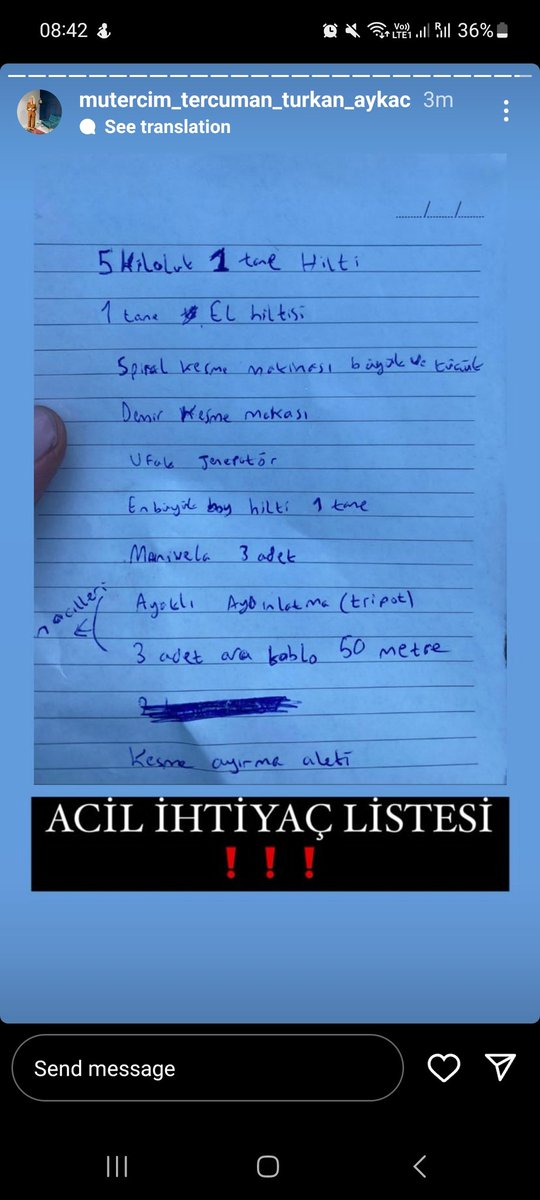 08:42
Vo)) LTE1 R 36%
mutercim_tercuman_turkan_aykac 3m
See translation
___/___/___
5 Kiloluk 1 tane Hilti
1 tane El hiltisi
Spiral kesme makinası büyük ve küçük
Demir Kesme makası
Ufak Jeneratör
En büyük boy hilti 1 tane
Manivela 3 adet
Ayaklı Aydınlatma (tripot)
3 adet ara kablo 50 metre
Kesme ayırma aleti
ACİL İHTİYAÇ LİSTESİ
❗❗❗
Send message